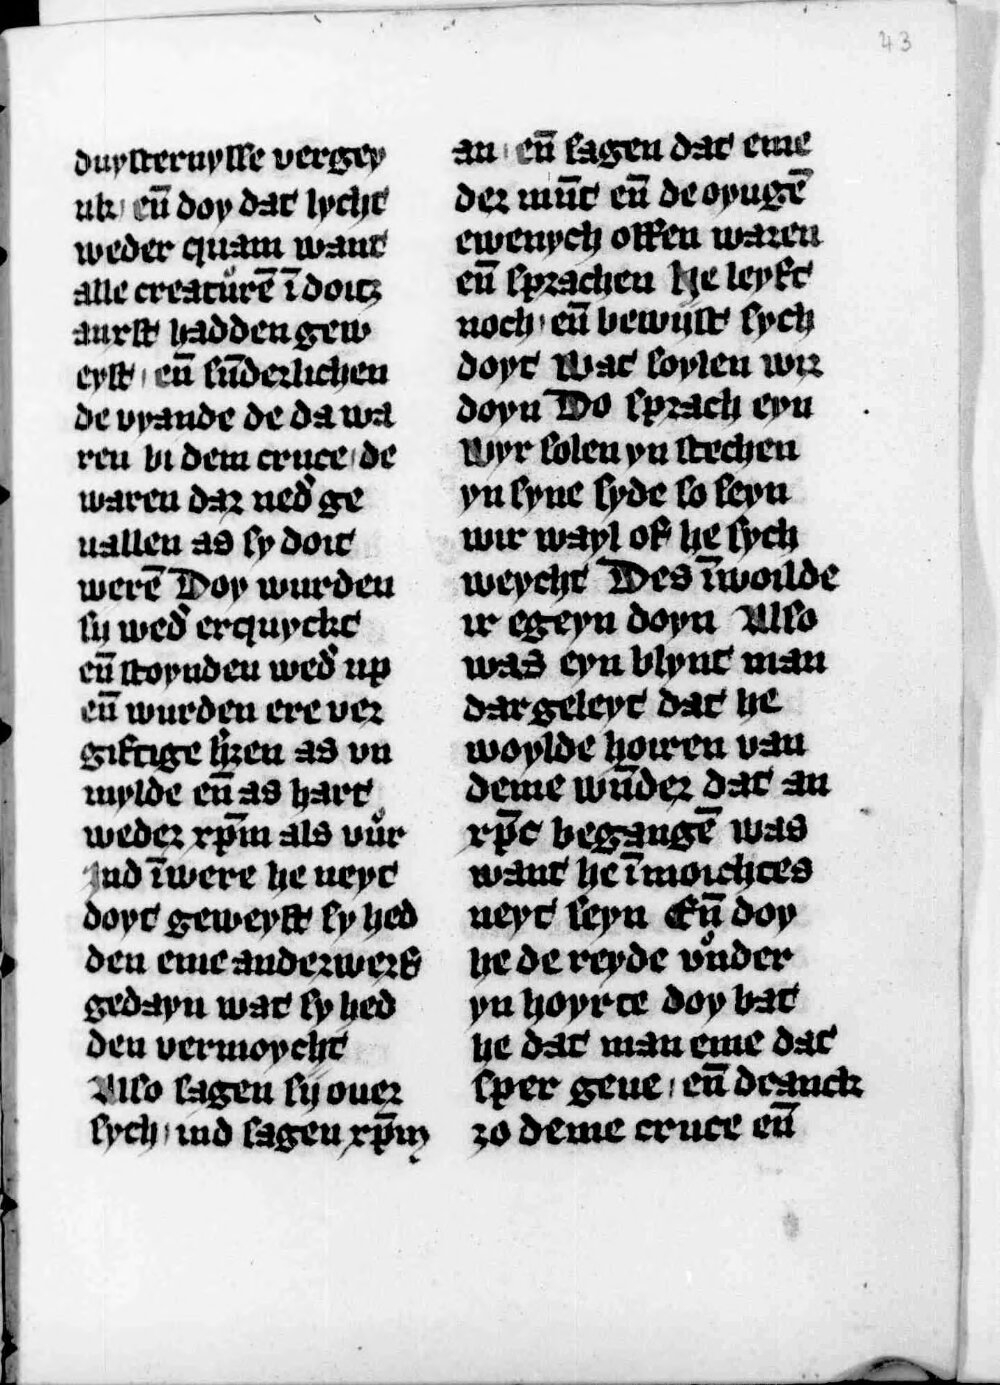 43
duysternysse vergey
nk, en̄ doy dat lycht
weder quam want
alle creatůrē ī doitz
anxst hadden gew
eyst, en̄ sūderlichen
de vyande de da wa
ren bi dem cruce, de
waren dar ned' ge
uallen as sy doit
werē Doy wurden
sy wed' erquyckt
en̄ stoynden wed' up
en̄ wurden ere ver
giftige h'zen as vn
mylde en̄ as hart
weder xp̄m als vůr
Ind īwere he neyt
doyt geweyst sy hed
den eme anderwers
gedayn wat sy hed
den vermoycht
Also sagen sy ouer
sych, ind sagen xp̄m
an, en̄ sagen dat eme
der mūt en̄ de oyugē
ewenych offen waren
en̄ sprachen he leyft
noch, en̄ bewijst sych
doyt wat soylen wir
doyn Do sprach eyn
wyr solen yn stechen
yn syne syde so seyn
wir wayl of he sych
weycht Des īwoilde
ir egeyn doyn Also
was eyn blynt man
dar geleyt dat he
woylde hoiren van
deme wūder dat an
xp̄c begangē was
want he īmoichtes
neyt seyn En̄ doy
he de reyde vůnder
yn hoyrte doy bat
he dat man eme dat
sper geue, en̄ dranck
zo deme cruce en̄